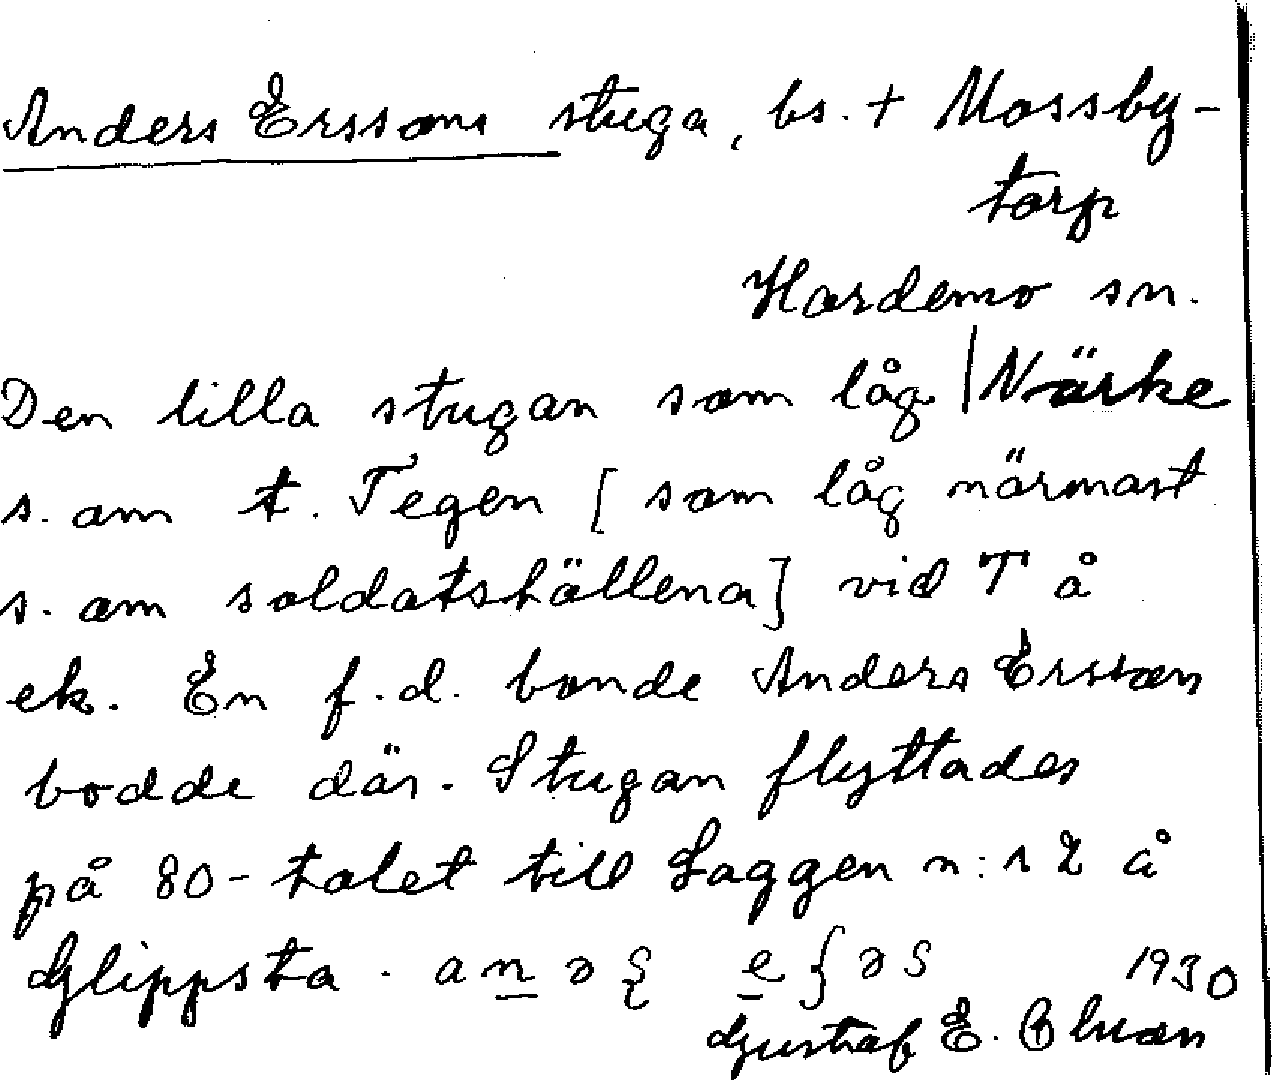 Anders Erssons stuga, bs. + Mossby-
torp
Hardemo sn.
Den lilla stugan som låg | Närke
s. om t. Tegen [ som låg närmast
s. om soldatshällena] vid T å
ek. En f.d. bonde Anders Ersson
bodde där. Stugan flyttades
på 80-talet till Laggen n:r 2 å
Glippsta. 1930
Gustaf E.